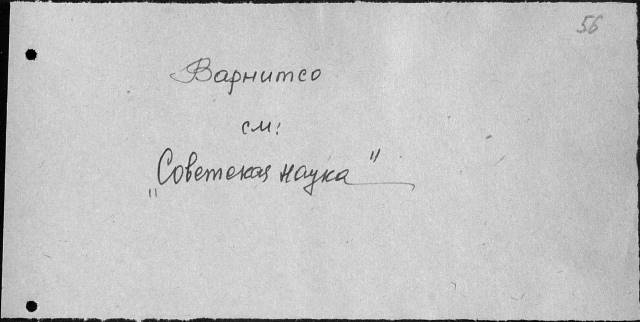 56
Варнитсо
см:
"Советская наука"